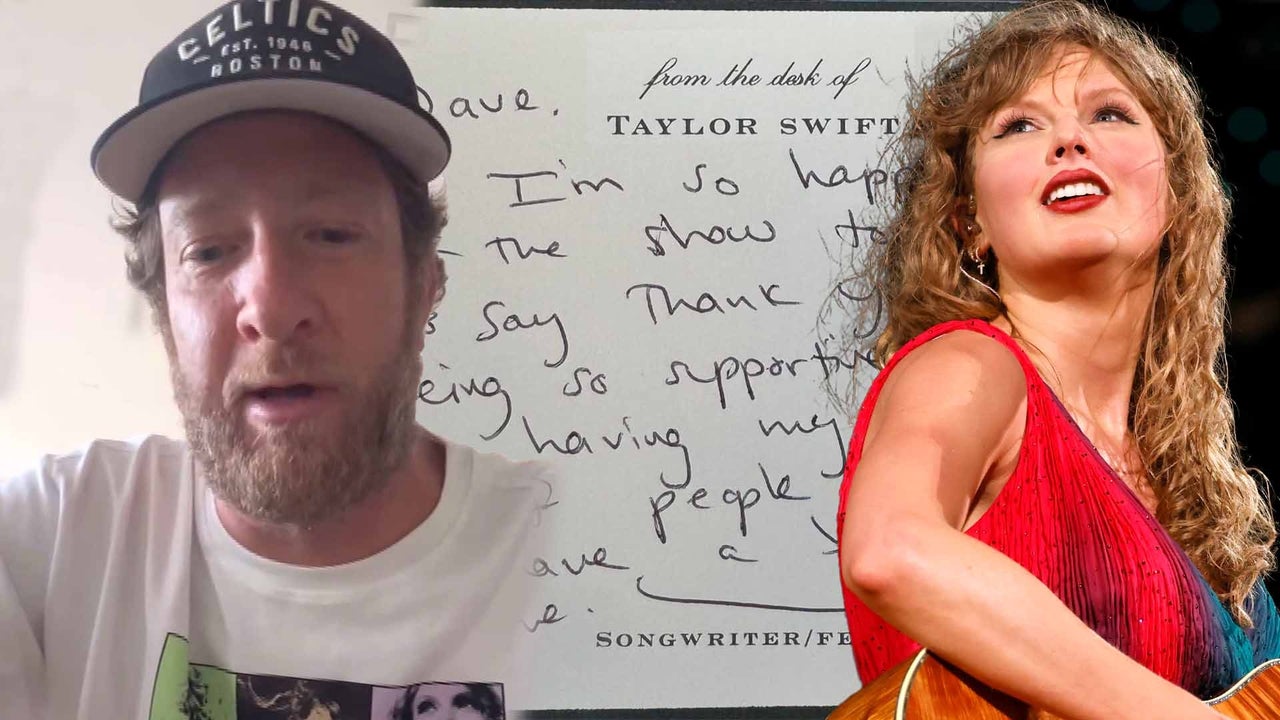 CELTICS
EST. 1946
BOSTON
from the desk of
TAYLOR SWIFT
Dave.
I'm so happ
the show to
say Thank y
eing so supportive
having my
people
ave a
ve.
SONGWRITER/FE